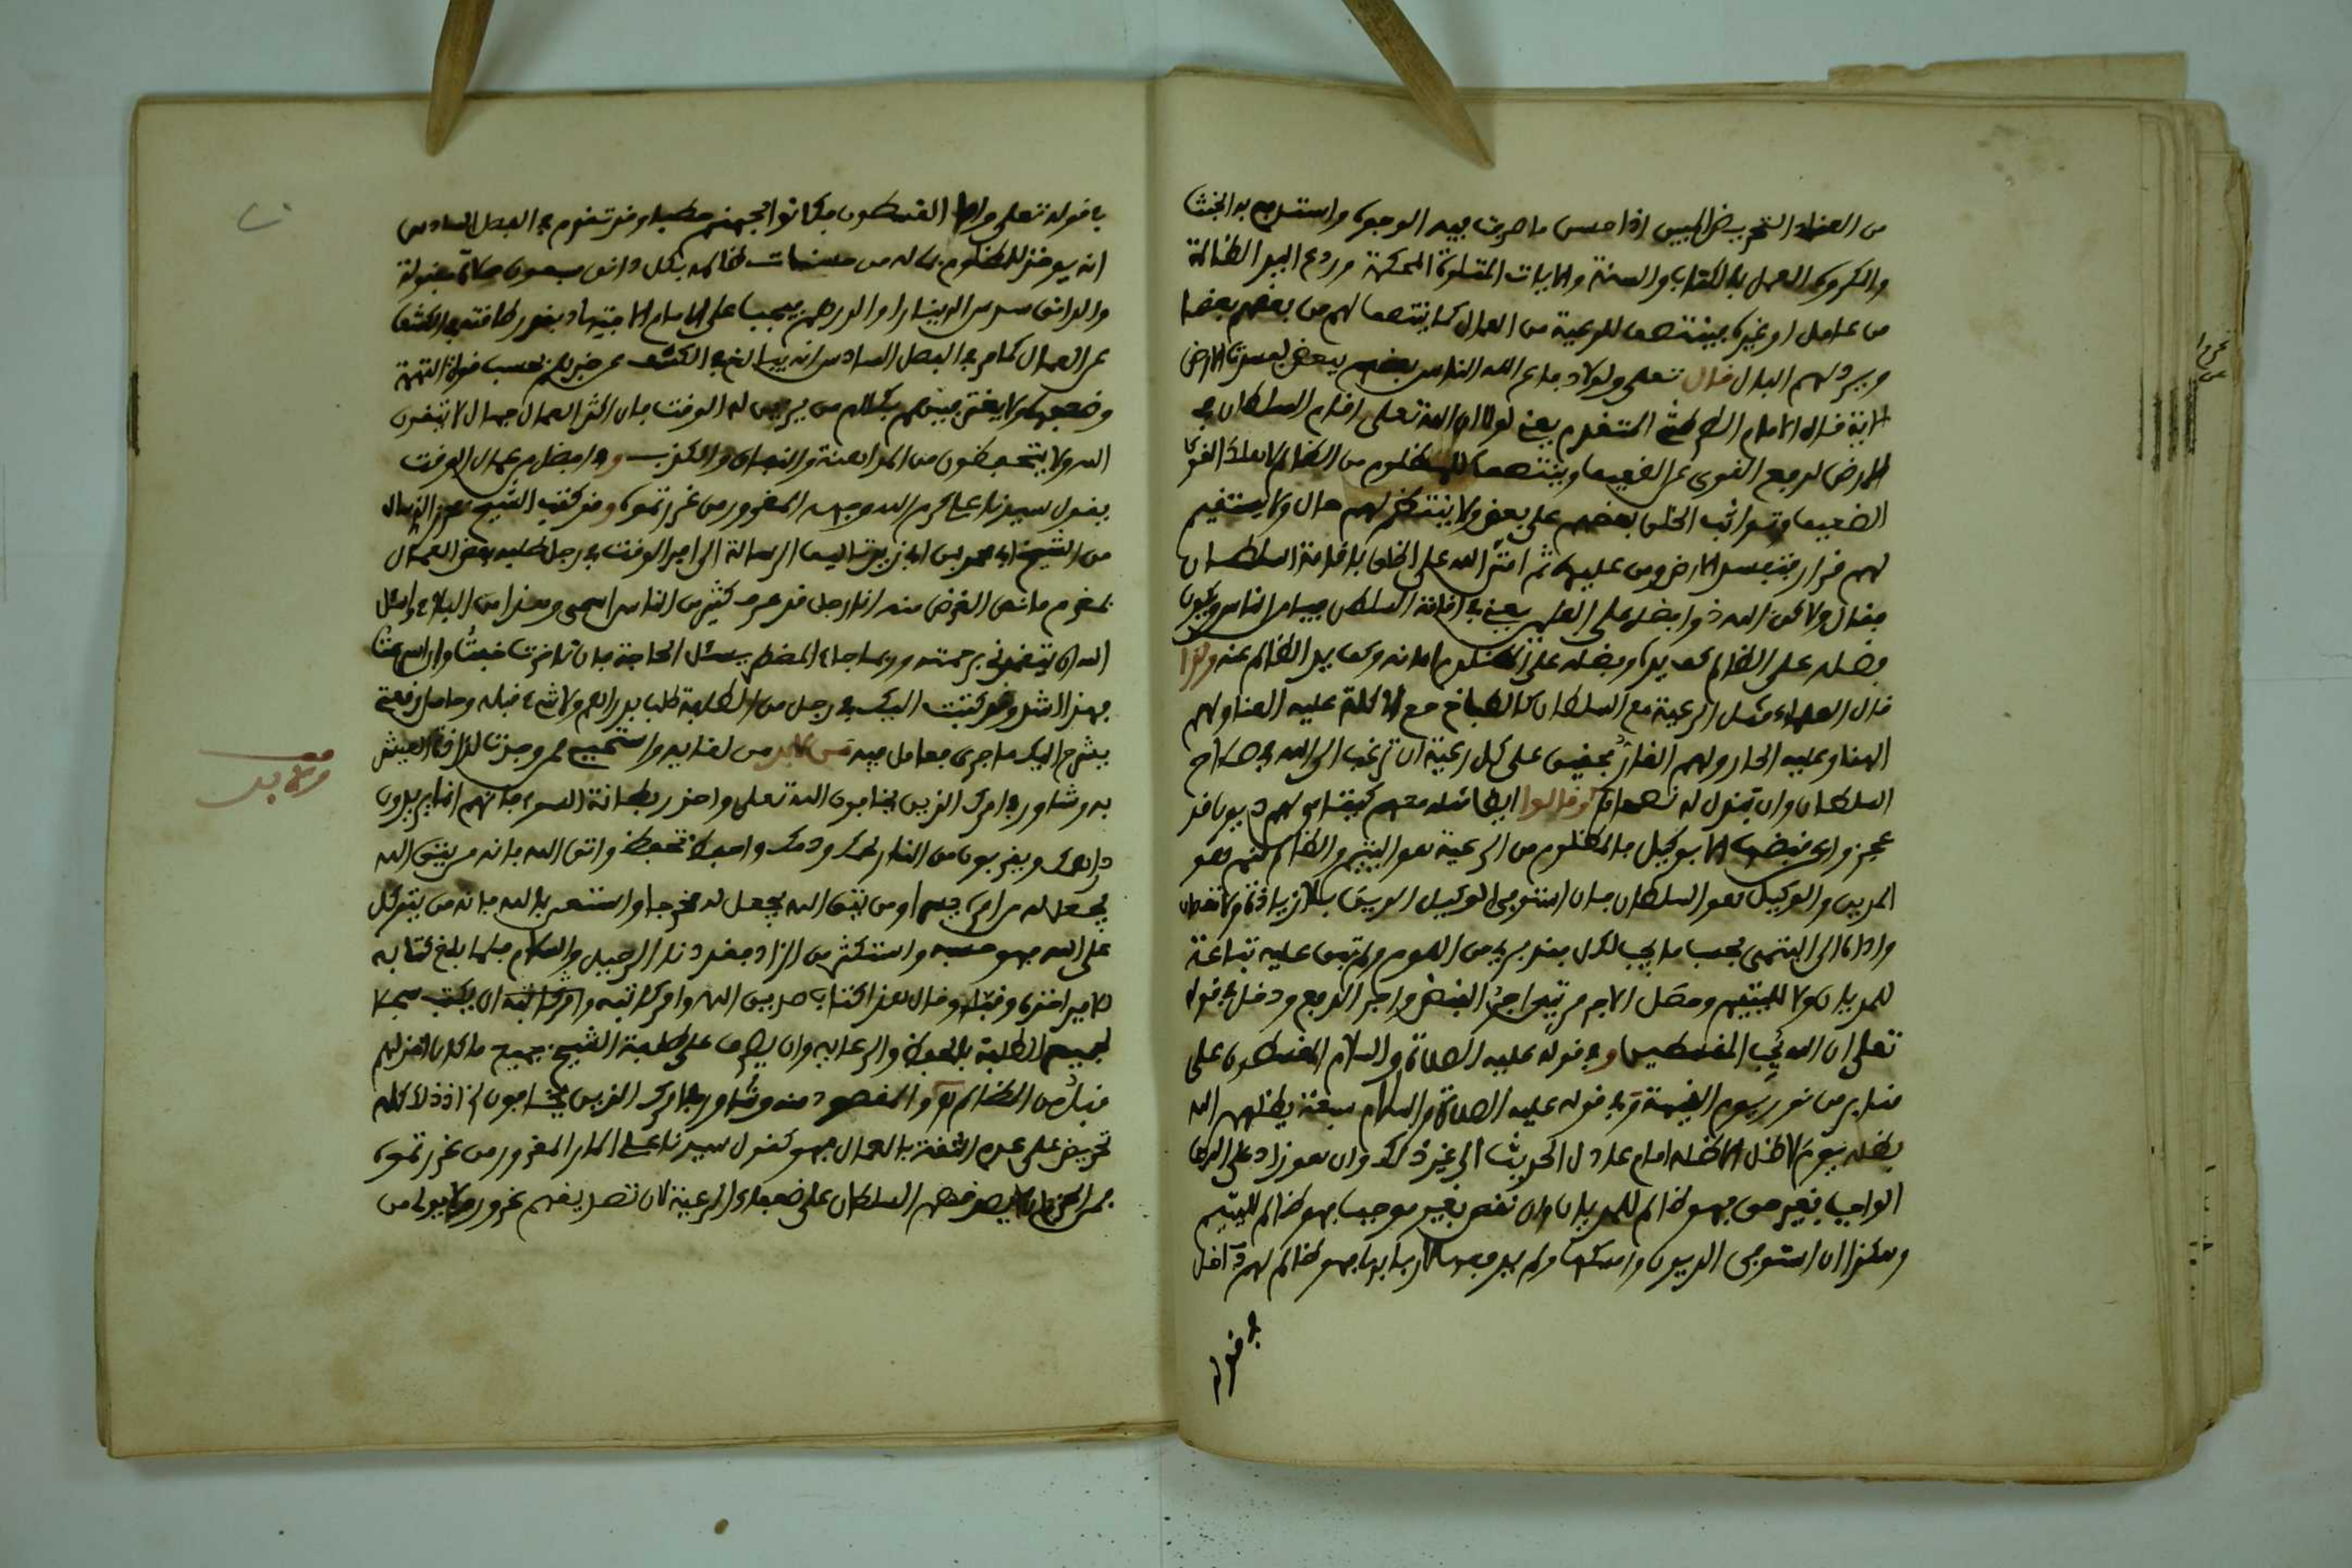 من العناد التحريض اذا حسن ما صرف فيه الوجوه واستقدم به
والكروه العمل بالكتاب والسنة والايات المتلوة المحكمة وردع اليد الظالمة
من عامل او غيره فينتصف للرعية من العمال كما ينتصف لهم من بعضهم بعضا
ويرد لهم المال قال تعلى ولولا دفاع الله الناس بعضهم ببعض لفسدت الارض
الاية قال الامام المتقدم يعني لولا ان الله تعلى اقام السلطان في
الارض لدفع القوي عن الضعيف وينتصف للمظلوم من الظالم لاهلك القوي
الضعيف وتواثب الخلق بعضهم على بعض ولا ينتظم لهم حال ولا يستقيم
لهم قرار فتفسد الارض ومن عليها ثم امتن الله على الخلق باقامة السلطان
فقال ولاكن الله ذو افضل على العلمين يعني في اقامة السلطان فيامن الناس ويكون
فضله على الظالم كف يده وفضله على المظلوم امانه وكف يد الظالم عنه
قال العلماء مثل الرعية مع السلطان كالطباخ مع الاكلة عليه العنا ولهم
الهنا وعليه الحار ولهم القار فحقيق على كل رعية ان ترغب الى الله في صلاح
السلطان وان تبذل له نصحها وقالوا ايضا مثله معهم كيتامى لهم ديون قد
عجزوا عن قبضها الا بوكيل فالمظلوم من الرعية هو اليتيم والظالم منهم هو
المدين والوكيل هو السلطان فان استوفى الوكيل الدين بلا زيادة ولا نقصان
واداه الى اليتمى بحسب ما يجب لكل فقد برئ من اللوم ولم تبق عليه تباعة
للمديان ولا لليتيم وحصل الاجر مرتين اجر القبض واجر الدفع ودخل في قوله
تعلى ان الله يحب المقسطين وفي قوله عليه الصلاة والسلام المقسطون على
منابر من نور يوم القيمة وفي قوله عليه الصلاة والسلام سبعة يظلهم الله
بظله يوم لا ظل الا ظله امام عادل الحديث الى غير ذلك وان هو زاد على الدين
الواجب بغير حق فهو ظالم للمديان وان نقص بغير موجب فهو ظالم لليتيم
وهكذا ان استوفى الديون وامسكها ولم يدفعها لاربابها فهو ظالم لهم داخل
في قوله
في قوله تعلى واما القسطون فكانوا لجهنم حطبا وقد تقدم في الفصل السادس
انه يوخذ للمظلوم ماله من حسنات ظالمه بكل دانق سبعون صلاة مقبولة
والدانق سدس الدينار او الدرهم فيجب على الامام الاجتهاد بقدر طاقته في الكشف
عن العمال كما مر في الفصل السادس انه يبالغ في الكشف عن خبرهم بحسب قوة التهمة
وضعفها ولا يغتر بينهم بكلام من يزين له الوقت فان اكثر العمال جهال لا يتقون
الله ولا يتحفظون من المداهنة والنفاق والكذب وفي امثالهم عمال الوقت
يقول سيدنا علي كرم الله وجهه المغرور من غررتموه وقد كتب الشيخ
من الشيخ ابي محمد بن ابي زيد تاليف الرسالة الى امير الوقت في رجل طلبه بعض العمال
بمغرم ما نص الغرض منه انا رجل قد عرف كثير من الناس اسمي وهذا من البلاء واسئل
الله ان يتغمدني برحمته وربما جاء المضطر يسئل الحاجة فان تاخرت خبت وان اسرعت
فهذا اشد وقد كتبت اليك في رجل من الطلبة طلب بدراهم ولا شيء قبله وحامل رقعتي
يشرح اليك ما جرى فعامل فيه من لا بد من لقايه واستحيي ممن وجدت لذاذة العيش
به وشاور في امرك الذين يخافون الله تعلى واحذر بطانة السوء فانهم انما يريدون
دراهمك ويقربون من النار لحمك ودمك واتق الله فانه من يتق الله
يجعل له من امره يسرا ومن يتق الله يجعل له مخرجا واستعن بالله فانه من يتوكل
على الله فهو حسبه واستكثر من الزاد فقد دنا الرحيل والسلام فلما بلغ كتابه
للامير اخذه وقبله وقال هذا كتاب صديق الله وامر كاتبه ان يكتب سجلا
لجميع الطلبة بالحفظ والرعاية وان يصرف على طلبة الشيخ جميع ما كان اخذ لهم
قبل من المظالم والمقصود منه وشاور في امرك الذين يخافون الله اذ ذلك كله
تحريض على عدم الثقة بالعمال فهو كقول سيدنا علي المار المغرور من غررتموه
السلطان على ضعفاء الرعية لان تصديقهم غرور
من لا بد